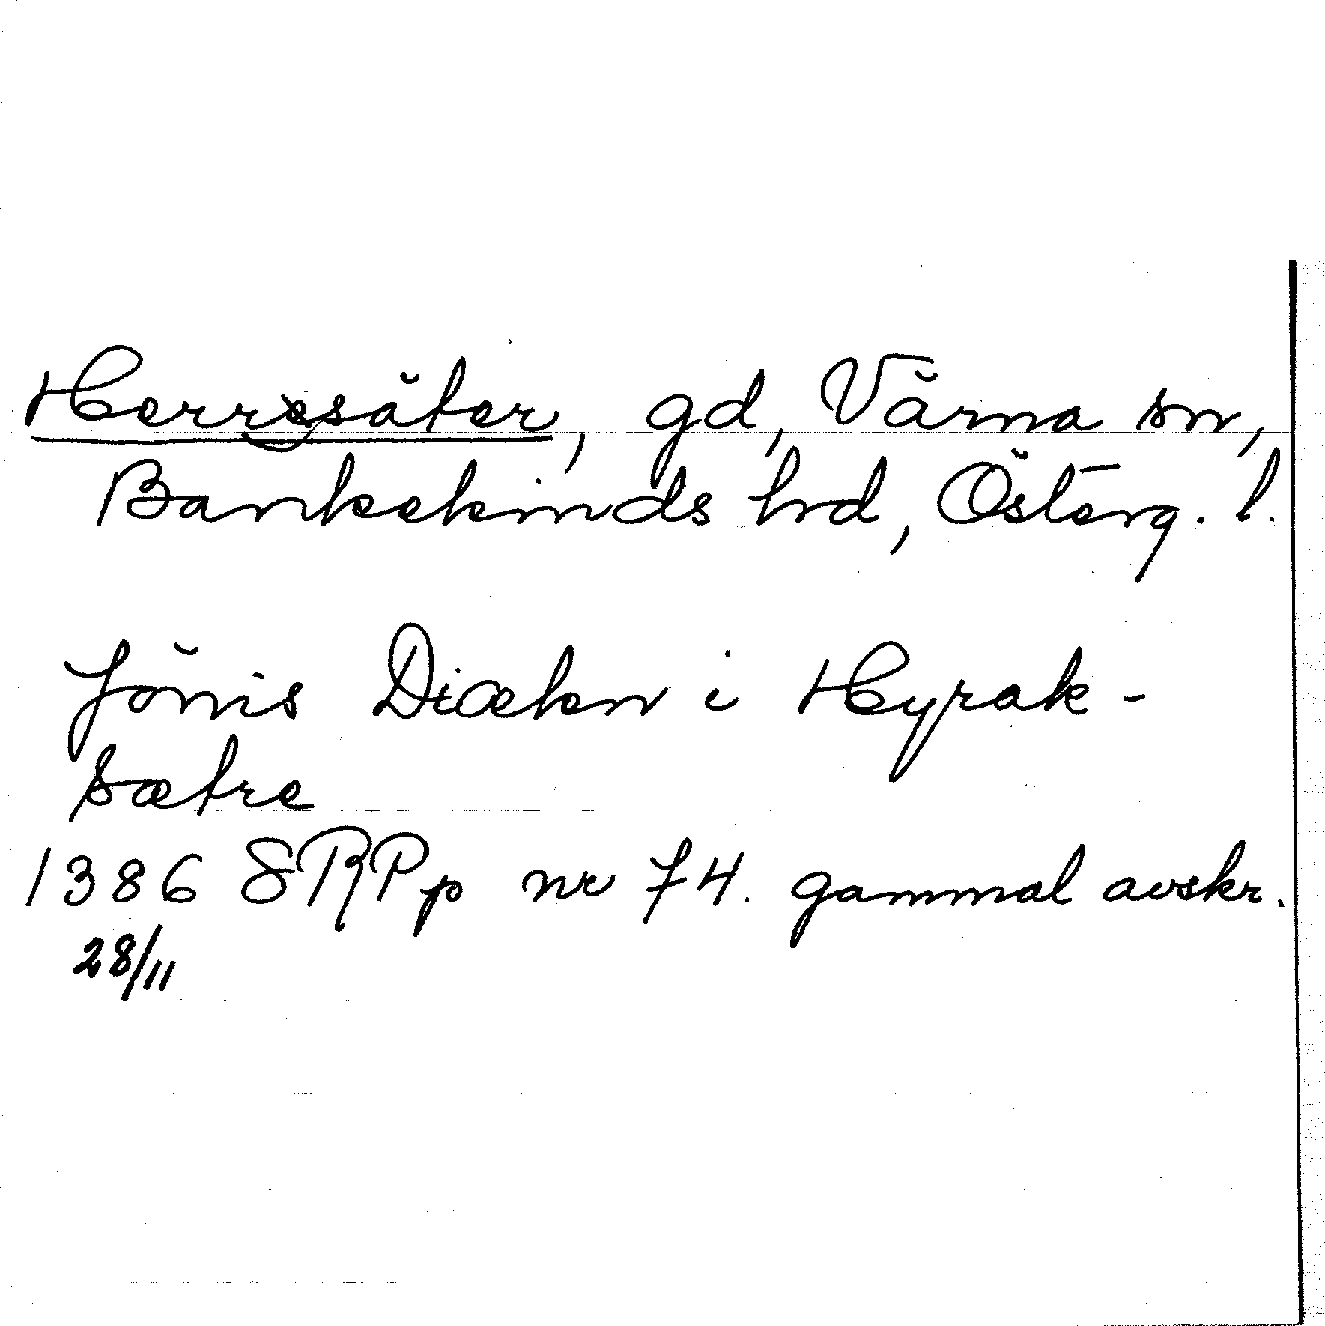 Herresäter, gd, Värna sn,
Bankekinds hd, Österg. l.
Jönis Diækn i Hyrak-
sætre
1386 SRPp nr 74. gammal avskr.
28/11